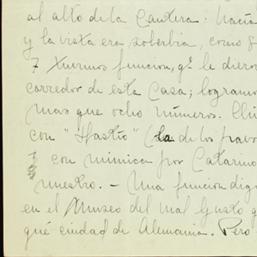 al alto de la Cantera. Hacía
y la vista era soberbia, como
7 Tuvimos función, qe le dieron
corredor de esta Casa; logramos
mas que ocho números.
con "Hastío" (la de los pavos
con mímica por Catarino
nuestro. — Una función dig
en el Museo del mal gusto q
qué ciudad de Alemania. Pero